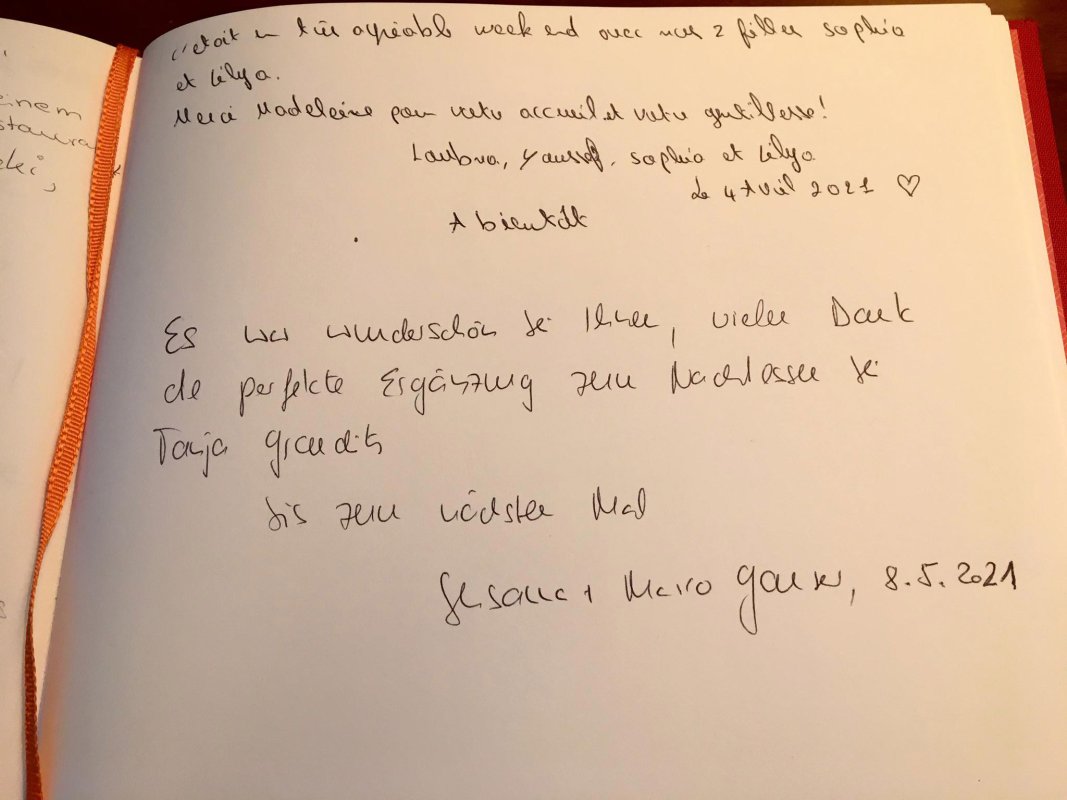 einem
c'était un très agréable week end avec nos 2 filles Sophia
et Lilya.
Merci Madeleine pour votre accueil et votre gentillesse!
Loubna, Youssef, Sophia et Lilya
Le 4 Avril 2021 ♡
A bientôt
Es war wunderschön bei Ihnen, vielen Dank
die perfekte Ergänzung zum Nachtessen bei
Tanja Grandits
bis zum nächsten Mal
Susanne + Marco, 8.5.2021